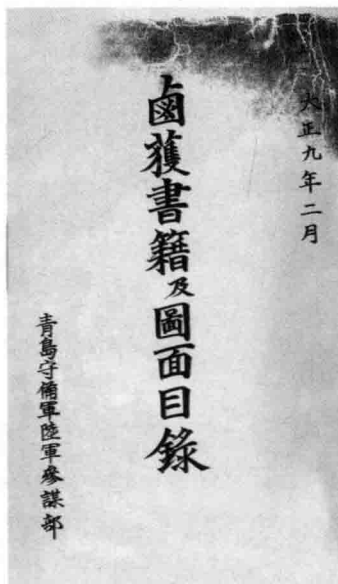 大正九年二月
鹵獲書籍及圖面目錄
青島守備軍陸軍參謀部